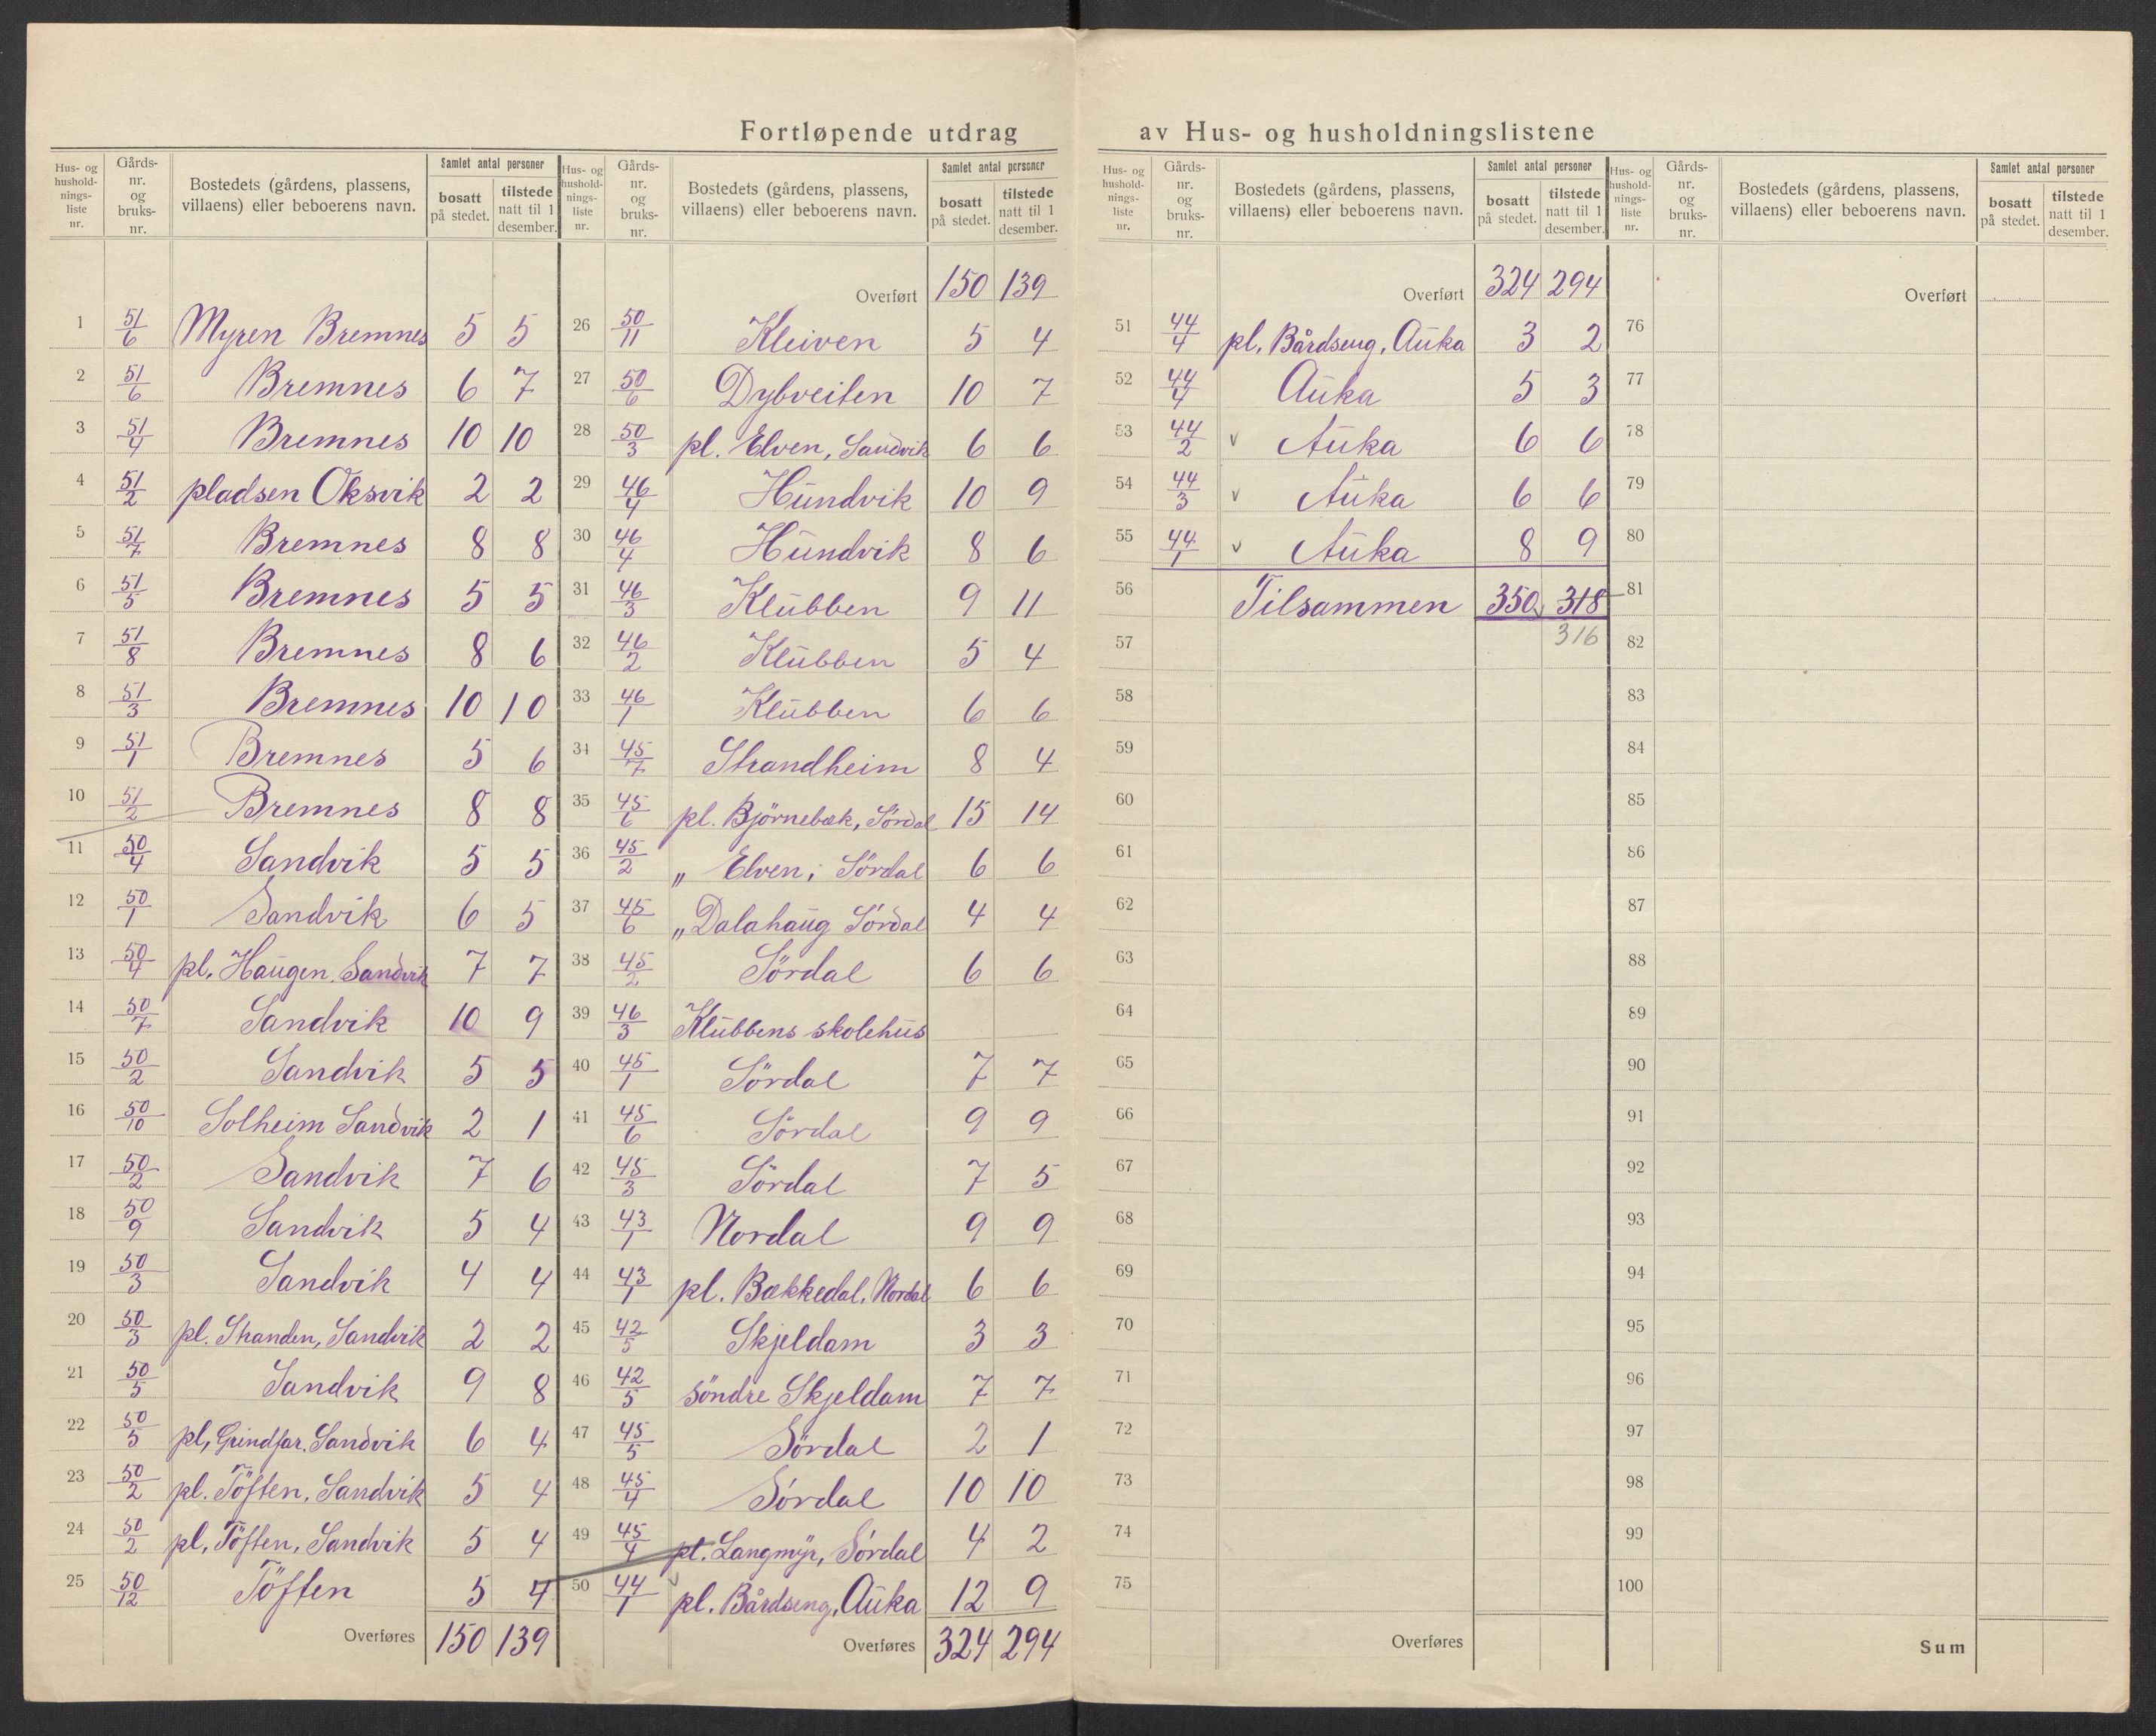 Fortløpende utdrag av Hus- og husholdningslistene
Hus- og husholdnings-liste nr. Gårds-nr. og bruks-nr. Bostedets (gårdens, plassens, villaens) eller beboerens navn. Samlet antal personer bosatt på stedet. tilstede natt til 1 desember.
1 51/6 Myren Bremnes 5 5
2 51/6 Bremnes 6 7
3 51/4 Bremnes 10 10
4 51/2 pladsen Oksvik 2 2
5 51/7 Bremnes 8 8
6 51/5 Bremnes 5 5
7 51/8 Bremnes 8 6
8 51/3 Bremnes 10 10
9 51/1 Bremnes 5 6
10 51/2 Bremnes 8 8
11 50/4 Sandvik 5 5
12 50/1 Sandvik 6 5
13 50/4 pl. Haugen. Sandvik 7 7
14 50/7 Sandvik 10 9
15 50/2 Sandvik 5 5
16 50/10 Solheim Sandvik 2 1
17 50/2 Sandvik 7 6
18 50/9 Sandvik 5 4
19 50/3 Sandvik 4 4
20 50/3 pl. Stranden, Sandvik 2 2
21 50/5 Sandvik 9 8
22 50/5 pl, Grindfar. Sandvik 6 4
23 50/2 pl. Töften, Sandvik 5 4
24 50/2 pl, Töften, Sandvik 5 4
25 50/12 Töften 5 4
Overføres 150 139
Hus- og husholdnings-liste nr. Gårds-nr. og bruks-nr. Bostedets (gårdens, plassens, villaens) eller beboerens navn. Samlet antal personer bosatt på stedet. tilstede natt til 1 desember.
Overført 150 139
26 50/11 Kleiven 5 4
27 50/6 Dybveiten 10 7
28 50/3 pl. Elven, Sandvik 6 6
29 46/4 Hundvik 10 9
30 46/4 Hundvik 8 6
31 46/3 Klubben 9 11
32 46/2 Klubben 5 4
33 46/1 Klubben 6 6
34 45/7 Strandheim 8 4
35 45/6 pl. Björnebæk, Sördal 15 14
36 45/2 „ Elven, Sördal 6 6
37 45/6 „ Dalahaug Sördal 4 4
38 45/2 Sördal 6 6
39 46/3 Klubbens skolehus
40 45/1 Sördal 7 7
41 45/6 Sördal 9 9
42 45/3 Sördal 7 5
43 43/1 Nordal 9 9
44 43/1 pl. Bækkedal. Nordal 6 6
45 42/5 Skjeldam 3 3
46 42/5 söndre Skjeldam 7 7
47 45/5 Sördal 2 1
48 45/4 Sördal 10 10
49 45/4 pl. Langmyr, Sördal 4 2
50 44/1 pl. Bårdseng, Auka 12 9
Overføres 324 294
Hus- og husholdnings-liste nr. Gårds-nr. og bruks-nr. Bostedets (gårdens, plassens, villaens) eller beboerens navn. Samlet antal personer bosatt på stedet. tilstede natt til 1 desember.
Overført 324 294
51 44/4 pl. Bårdseng, Auka 3 2
52 44/4 Auka 5 3
53 44/2 v Auka 6 6
54 44/3 v Auka 6 6
55 44/1 v Auka 8 9
56 Tilsammen 350 318
57 316
58
59
60
61
62
63
64
65
66
67
68
69
70
71
72
73
74
75
Overføres
Hus- og husholdnings-liste nr. Gårds-nr. og bruks-nr. Bostedets (gårdens, plassens, villaens) eller beboerens navn. Samlet antal personer bosatt på stedet. tilstede natt til 1 desember.
Overført
76
77
78
79
80
81
82
83
84
85
86
87
88
89
90
91
92
93
94
95
96
97
98
99
100
Sum